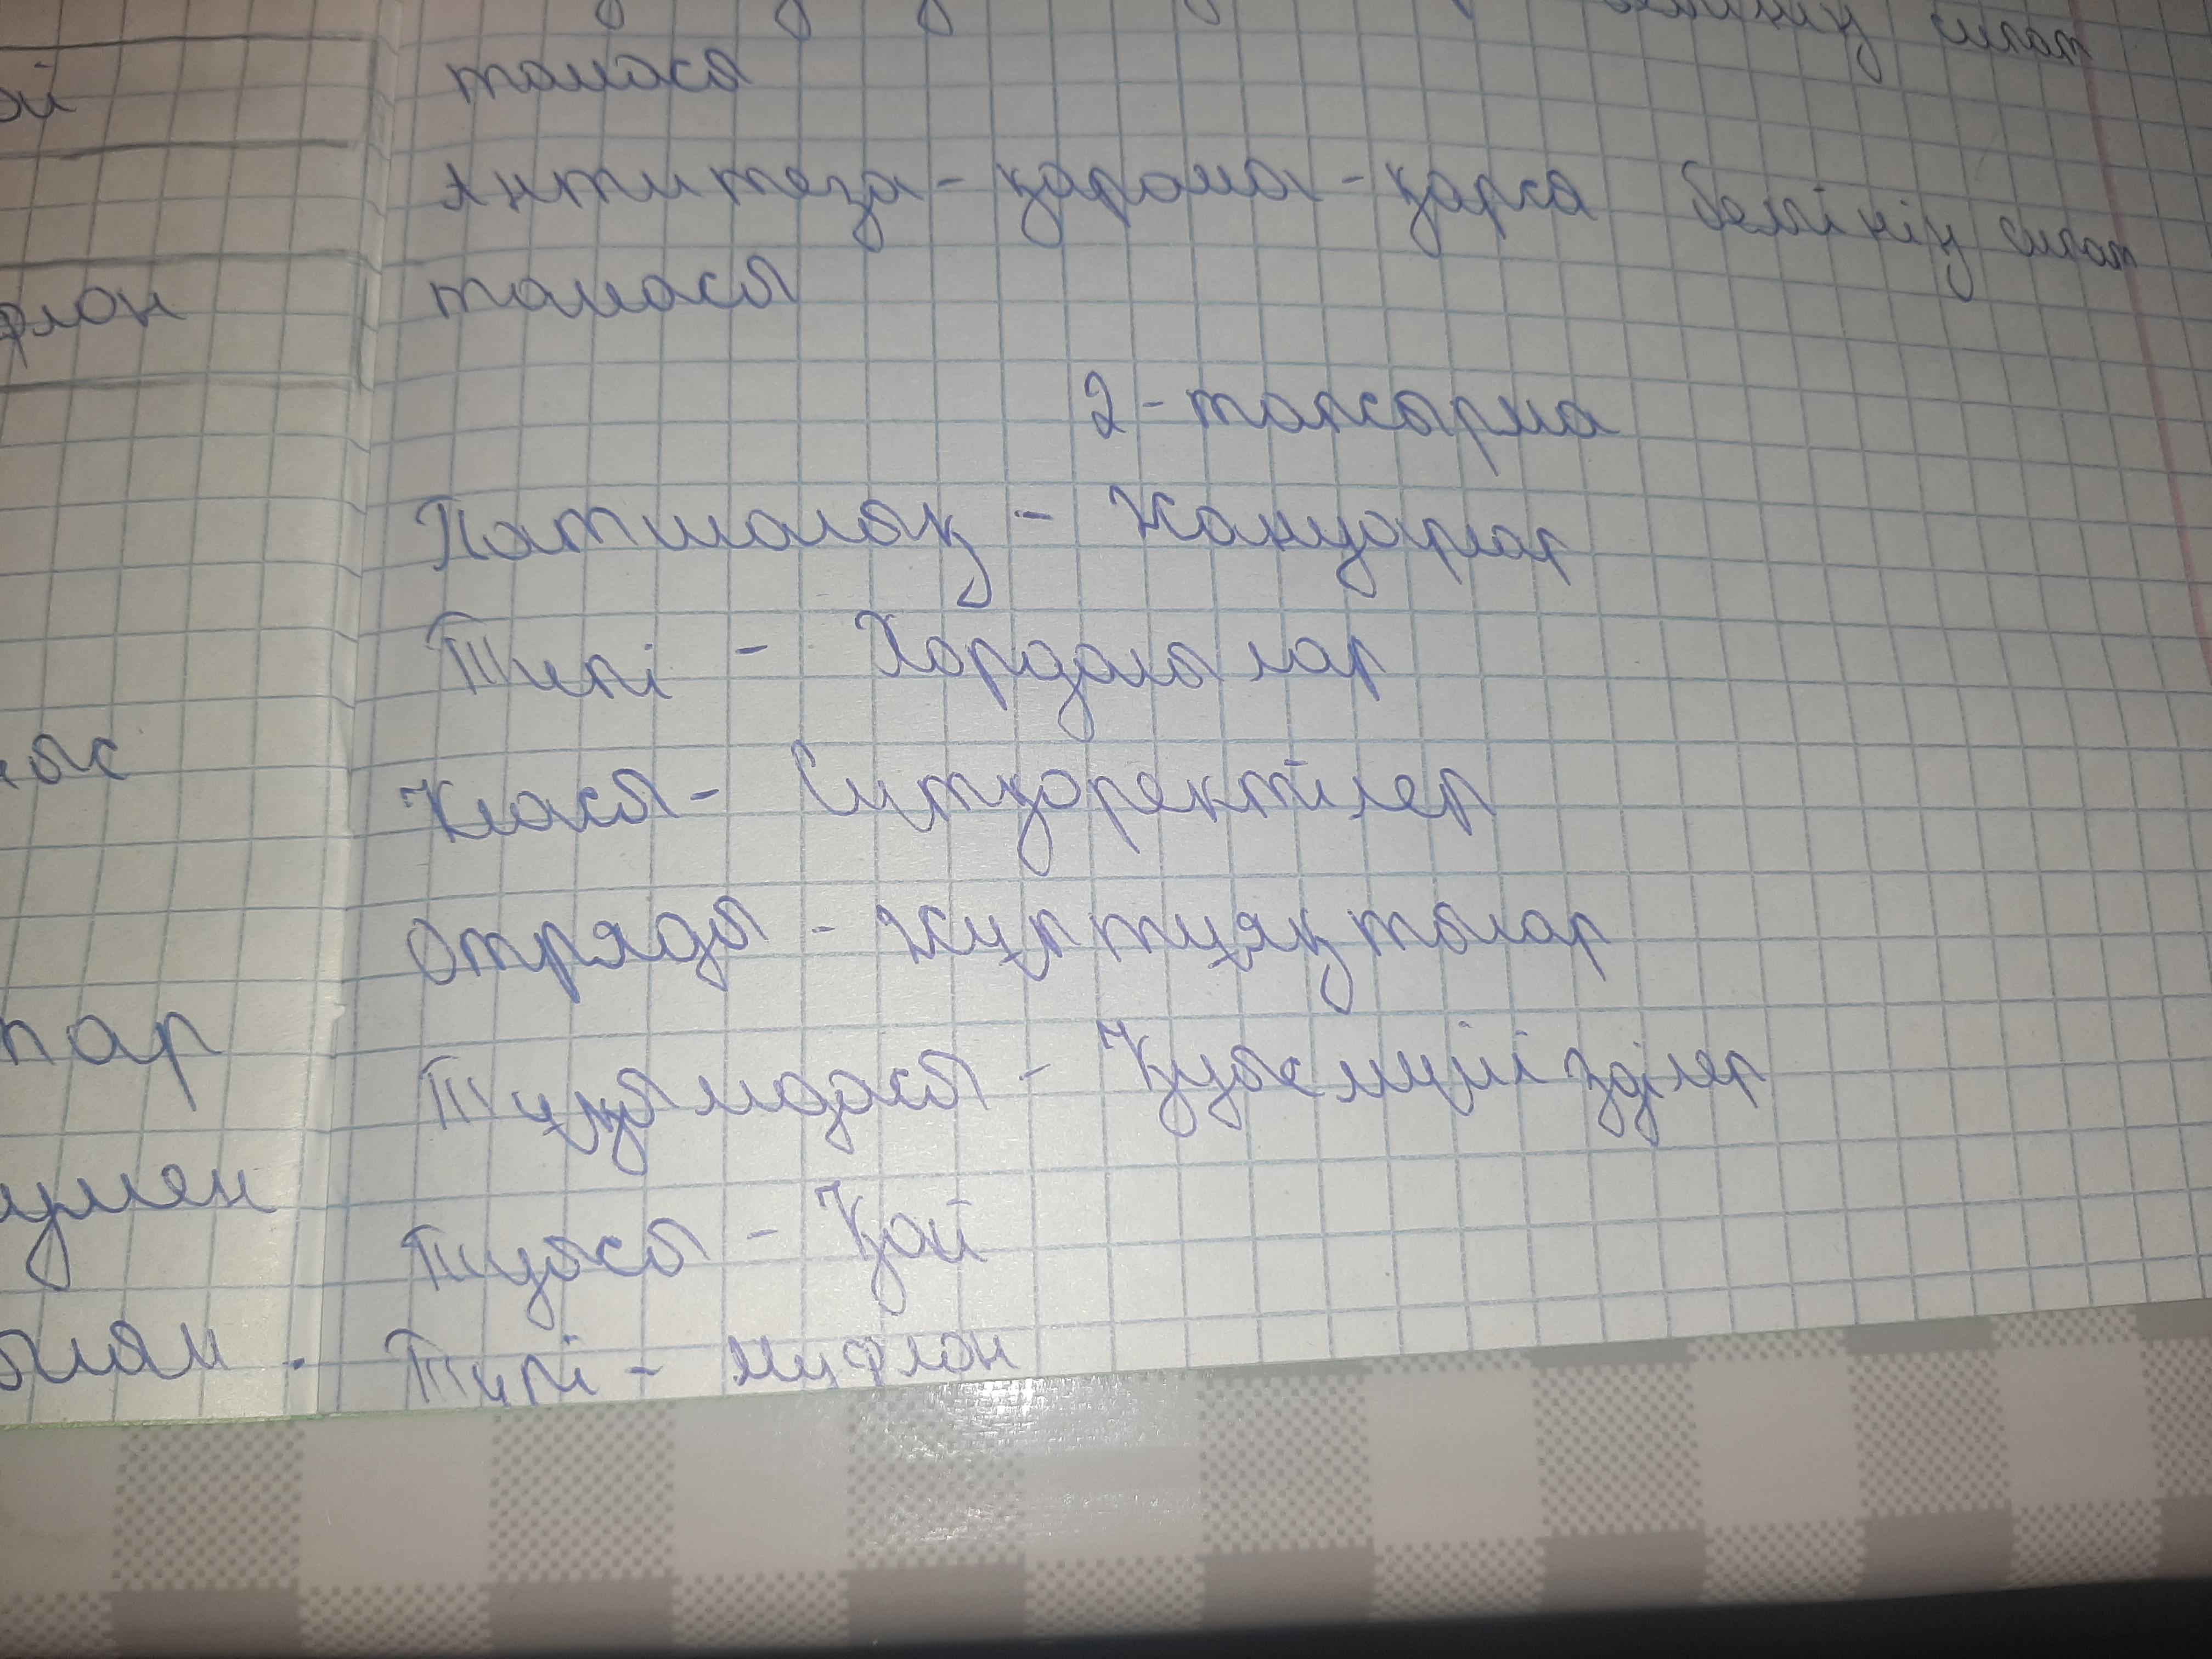 белгінің сипат
тамасы
Антитеза - қарама - қарсы белгінің сипат
тамасы
2 - тапсырма
Патшалық - Жануарлар
Типі - Хордалылар
Класы - Сүтқоректілер
Отряды - Жұптұяқтылар
Тұқымдасы - Қуысмүйізділер
Туысы - Қой
Типі - муфлон